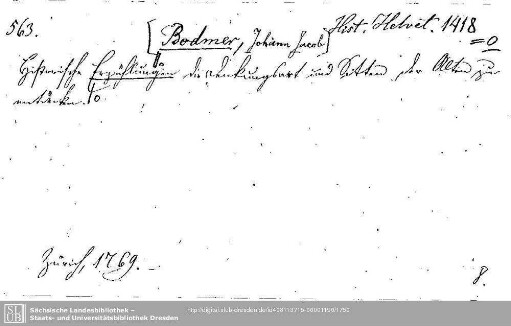 563.
[Bodmer, Johann Jacob] Hist. Helvet. 1418
=0
Historische Erzählungen die Denkungsart und Sitten der Alten zu
entdeken.
Zürich, 1769.
8.
SLUB
Sächsische Landesbibliothek –
Staats- und Universitätsbibliothek Dresden